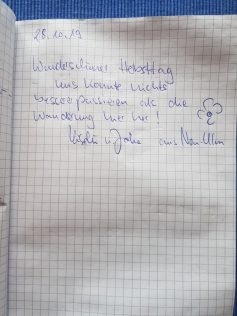 28.10.19
Wunderschöner Herbsttag
uns konnte nichts
besseres passieren als die
Wanderung hier her!
u. aus Neu-Ulm